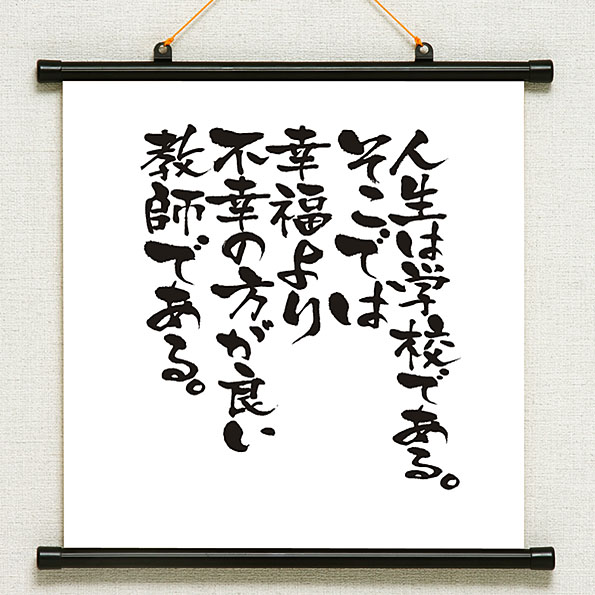 人生は学校である。
そこでは
幸福より
不幸の方が良い
教師である。